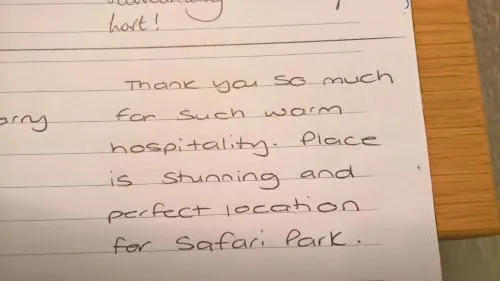 host!
Thank you so much
for such warm
hospitality. Place
is stunning and
perfect location
for Safari Park.